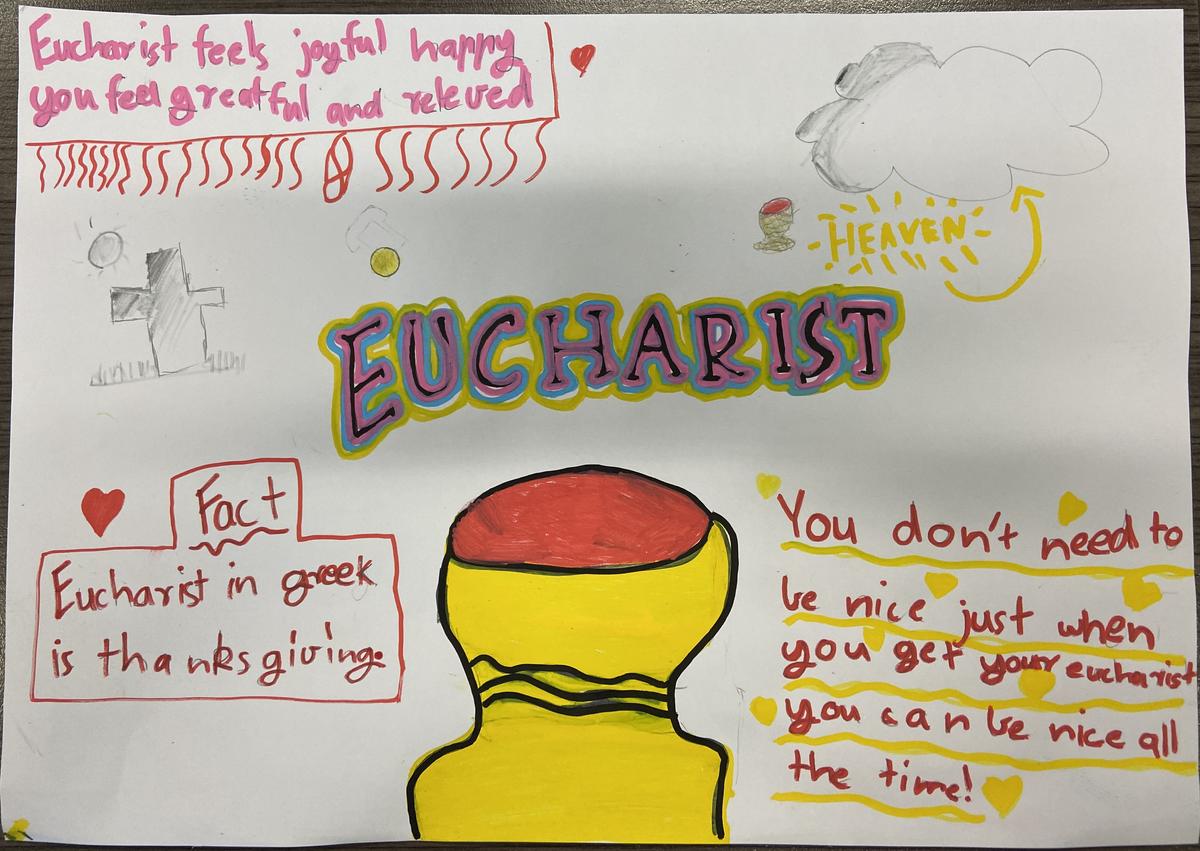 Eucharist feels joyful happy
you feel greatful and releved
HEAVEN
EUCHARIST
Fact
Eucharist in greek
is thanksgiving.
You don't need to
be nice just when
you get your eucharist
you can be nice all
the time!